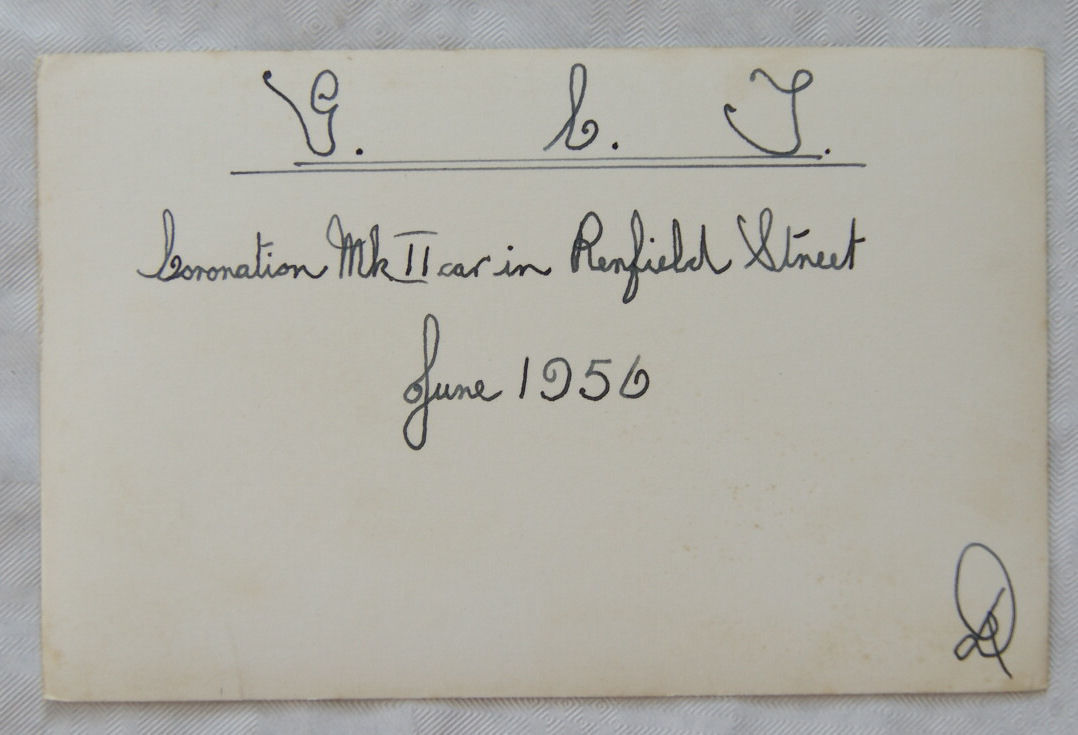 G. C. T.
Coronation Mk II car in Renfield Street
June 1956